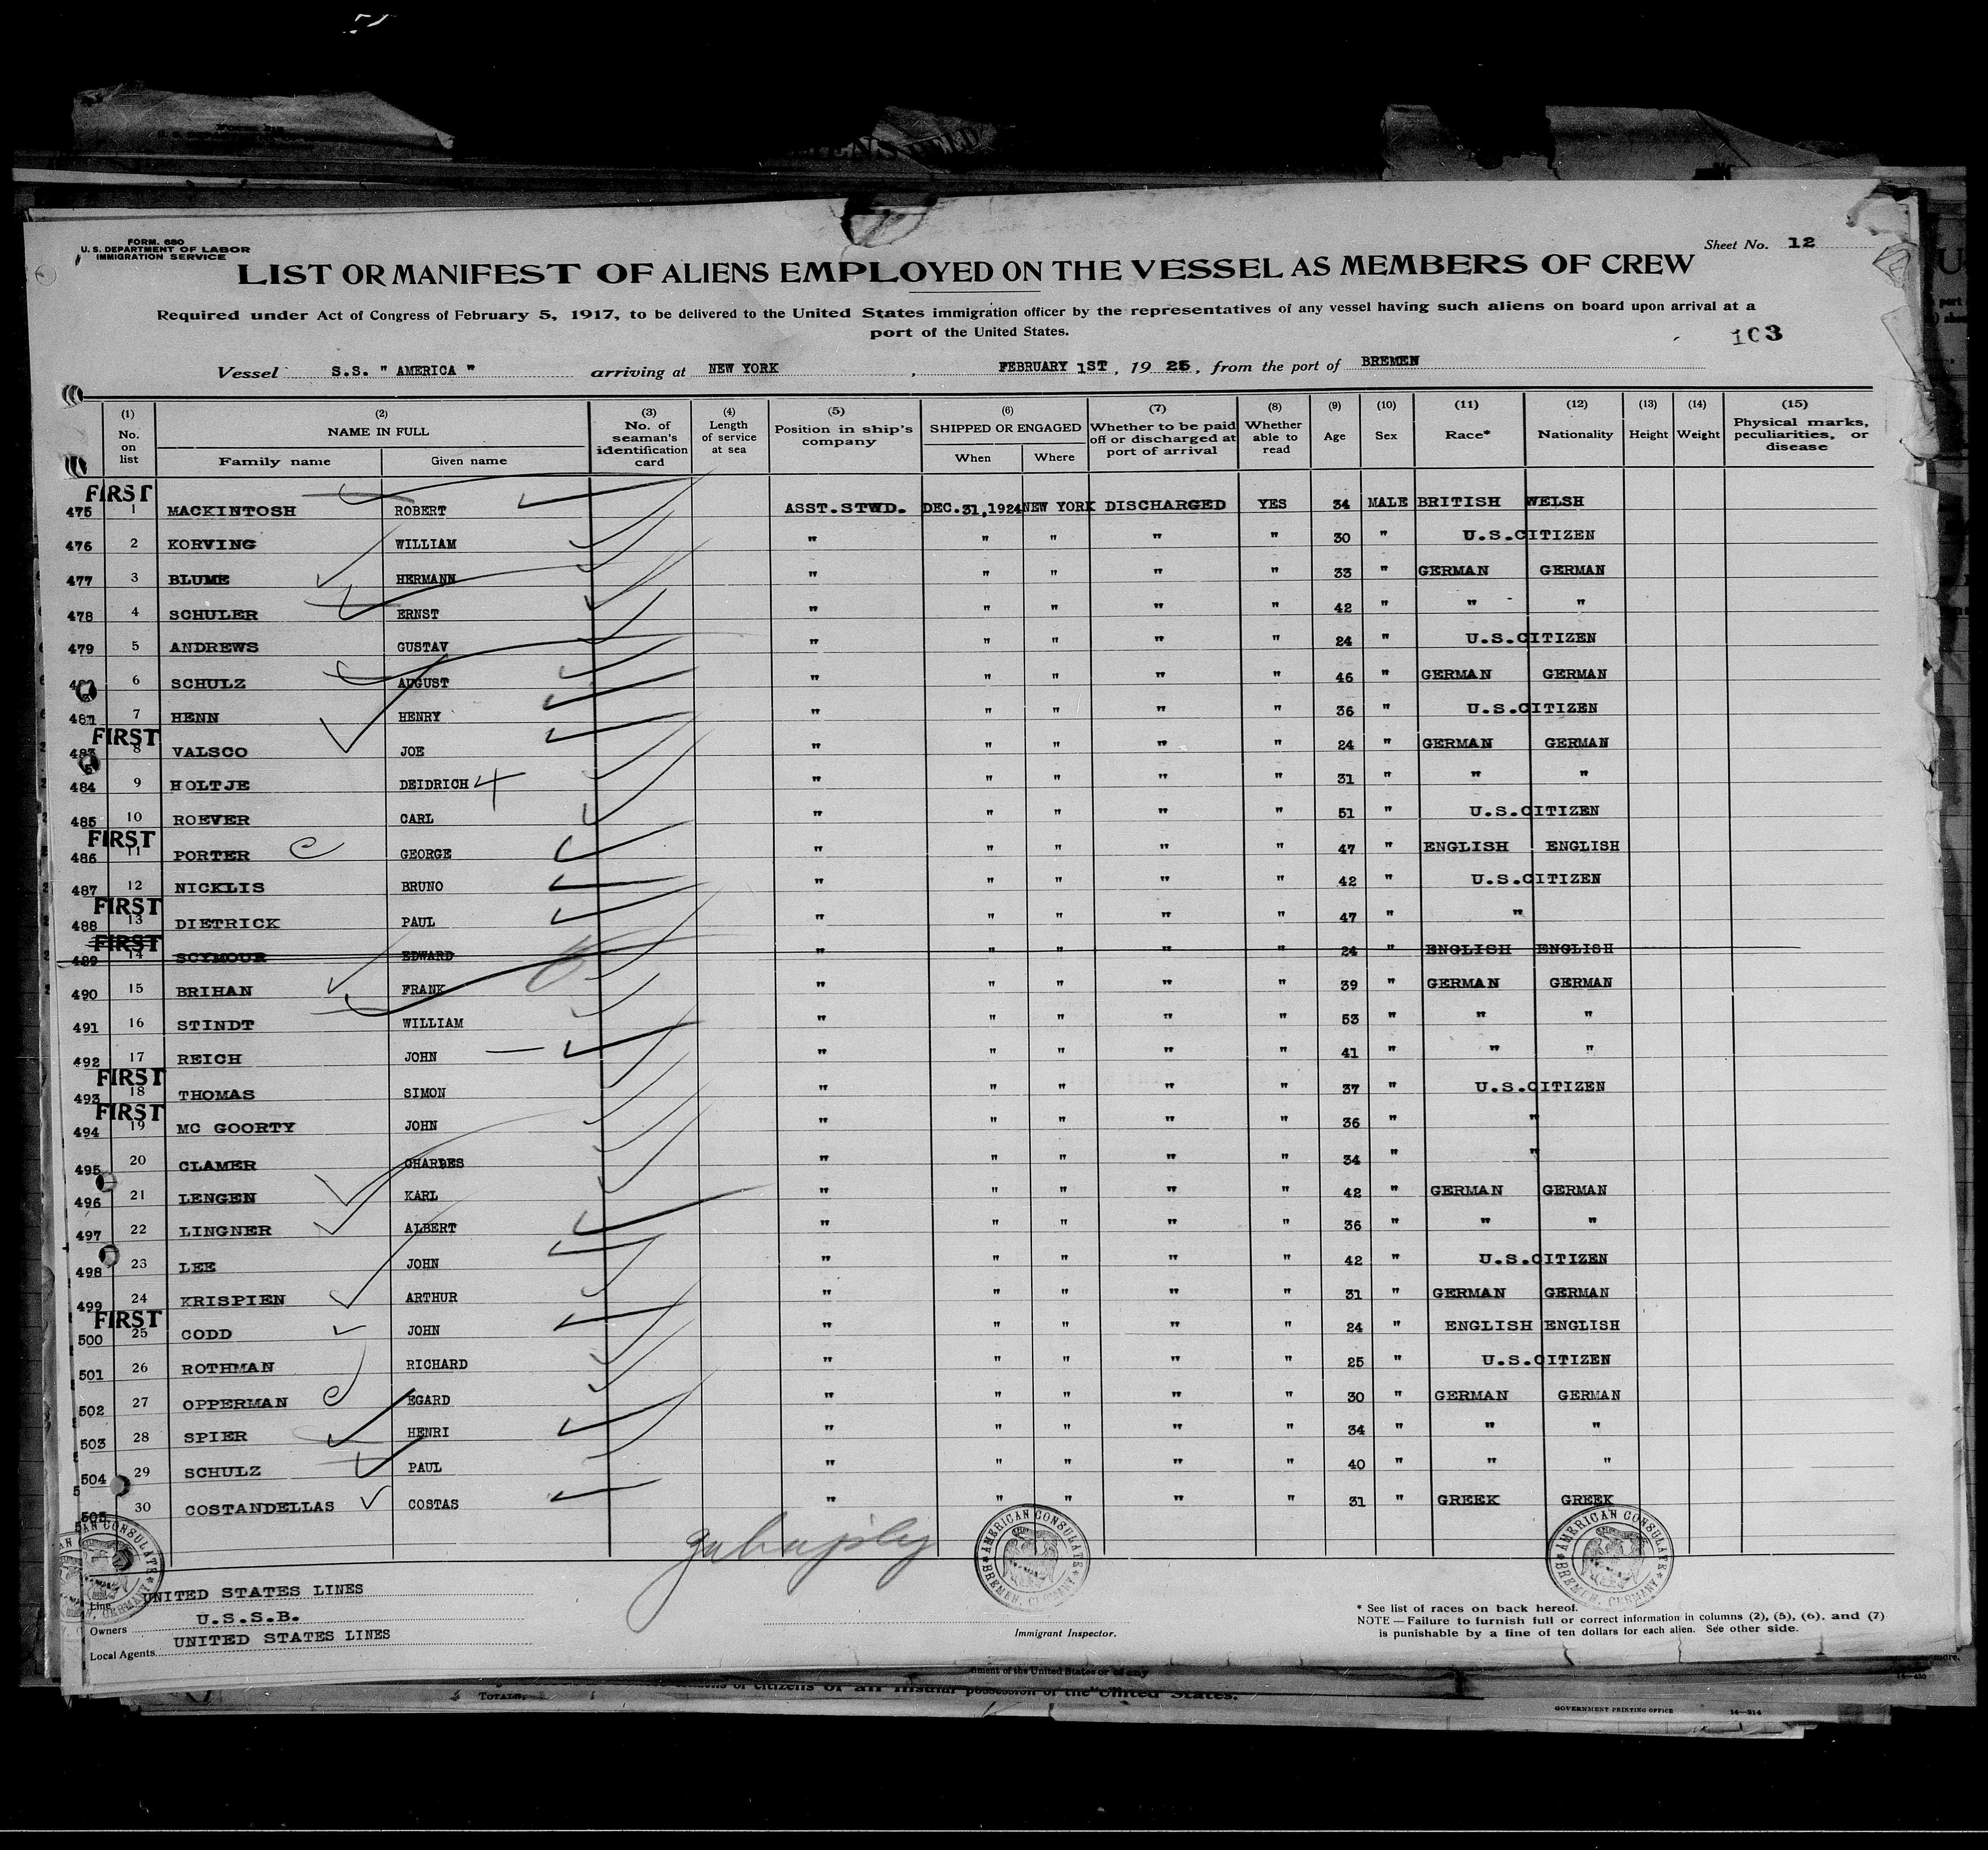 FORM. 680
U. S. DEPARTMENT OF LABOR
IMMIGRATION SERVICE
Sheet No. 12
LIST OR MANIFEST OF ALIENS EMPLOYED ON THE VESSEL AS MEMBERS OF CREW
Required under Act of Congress of February 5, 1917, to be delivered to the United States immigration officer by the representatives of any vessel having such aliens on board upon arrival at a
port of the United States.
103
Vessel S.S. " AMERICA " arriving at NEW YORK, FEBRUARY 1ST, 1925, from the port of BREMEN
(1) No. on list (2) NAME IN FULL Family name Given name (3) No. of seaman's identification card (4) Length of service at sea (5) Position in ship's company (6) SHIPPED OR ENGAGED When Where (7) Whether to be paid off or discharged at port of arrival (8) Whether able to read (9) Age (10) Sex (11) Race* (12) Nationality (13) Height (14) Weight (15) Physical marks, peculiarities, or disease
FIRST
475 1 MACKINTOSH ROBERT ASST.STWD. DEC.31,1924 NEW YORK DISCHARGED YES 34 MALE BRITISH WELSH
476 2 KORVING WILLIAM " " " " " 30 " U.S.CITIZEN
477 3 BLUME HERMANN " " " " " 33 " GERMAN GERMAN
478 4 SCHULER ERNST " " " " " 42 " " "
479 5 ANDREWS GUSTAV " " " " " 24 " U.S.CITIZEN
6 SCHULZ AUGUST " " " " " 46 " GERMAN GERMAN
481 7 HENN HENRY " " " " " 36 " U.S.CITIZEN
FIRST
483 8 VALSCO JOE " " " " " 24 " GERMAN GERMAN
484 9 HOLTJE DEIDRICH 4 " " " " " 31 " " "
485 10 ROEVER CARL " " " " " 51 " U.S.CITIZEN
FIRST
486 11 PORTER GEORGE " " " " " 47 " ENGLISH ENGLISH
487 12 NICKLIS BRUNO " " " " " 42 " U.S.CITIZEN
FIRST
488 13 DIETRICK PAUL " " " " " 47 " "
FIRST
489 14 SCYMOUR EDWARD " " " " " 24 " ENGLISH ENGLISH
490 15 BRIHAN FRANK " " " " " 39 " GERMAN GERMAN
491 16 STINDT WILLIAM " " " " " 53 " " "
492 17 REICH JOHN " " " " " 41 " " "
FIRST
493 18 THOMAS SIMON " " " " " 37 " U.S.CITIZEN
FIRST
494 19 MC GOORTY JOHN " " " " " 36 " "
495 20 CLAMER CHARLES " " " " " 34 " "
496 21 LENGEN KARL " " " " " 42 " GERMAN GERMAN
497 22 LINGNER ALBERT " " " " " 36 " " "
498 23 LEE JOHN " " " " " 42 " U.S.CITIZEN
499 24 KRISPIEN ARTHUR " " " " " 31 " GERMAN GERMAN
FIRST
500 25 CODD JOHN " " " " " 24 " ENGLISH ENGLISH
501 26 ROTHMAN RICHARD " " " " " 25 " U.S.CITIZEN
502 27 OPPERMAN EGARD " " " " " 30 " GERMAN GERMAN
503 28 SPIER HENRI " " " " " 34 " " "
504 29 SCHULZ PAUL " " " " " 40 " " "
505 30 COSTANDELLAS COSTAS " " " " " 31 " GREEK GREEK
AMERICAN CONSULATE BREMEN, GERMANY
AMERICAN CONSULATE BREMEN, GERMANY
Line UNITED STATES LINES
Owners U.S.S.B.
Local Agents UNITED STATES LINES
Immigrant Inspector.
* See list of races on back hereof.
NOTE — Failure to furnish full or correct information in columns (2), (5), (6), and (7)
is punishable by a fine of ten dollars for each alien. See other side.
TOTALS.
possession of the United States.
GOVERNMENT PRINTING OFFICE 14—214